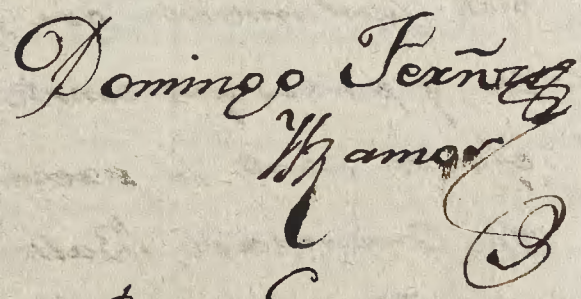 Domingo Fern̄z
Ramos